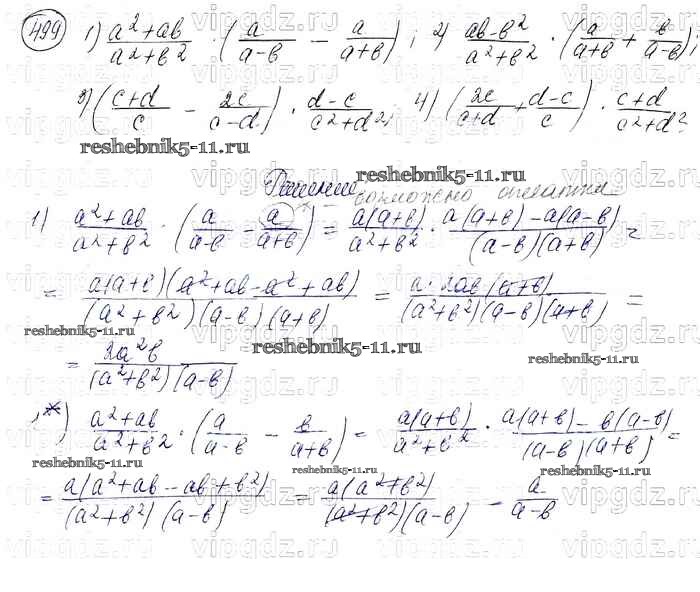 499 1) (a² + ab)/(a² + b²) · (a/(a-b) - a/(a+b)); 2) (ab-b²)/(a²+b²) · (a/(a+b) + b/(a-b));
3) ((c+d)/c - 2c/(c-d)) · (d-c)/(c²+d²); 4) (2c/(c+d) + (d-c)/c) · (c+d)/(c²+d²)
reshebnik5-11.ru reshebnik5-11.ru
Решение
возможно опечатка
1) (a²+ab)/(a²+b²) · (a/(a-b) - a/(a+b)) = a(a+b)/(a²+b²) · (a(a+b) - a(a-b))/((a-b)(a+b)) =
= a(a+b)(a²+ab-a²+ab)/((a²+b²)(a-b)(a+b)) = a·2ab(a+b)/((a²+b²)(a-b)(a+b)) =
reshebnik5-11.ru reshebnik5-11.ru
= 2a²b/((a²+b²)(a-b)) reshebnik5-11.ru
*) (a²+ab)/(a²+b²) · (a/(a-b) - b/(a+b)) = a(a+b)/(a²+b²) · (a(a+b) - b(a-b))/((a-b)(a+b)) =
reshebnik5-11.ru reshebnik5-11.ru reshebnik5-11.ru
= a(a²+ab-ab+b²)/((a²+b²)(a-b)) = a(a²+b²)/((a²+b²)(a-b)) - a/(a-b)
vipgdz.ru